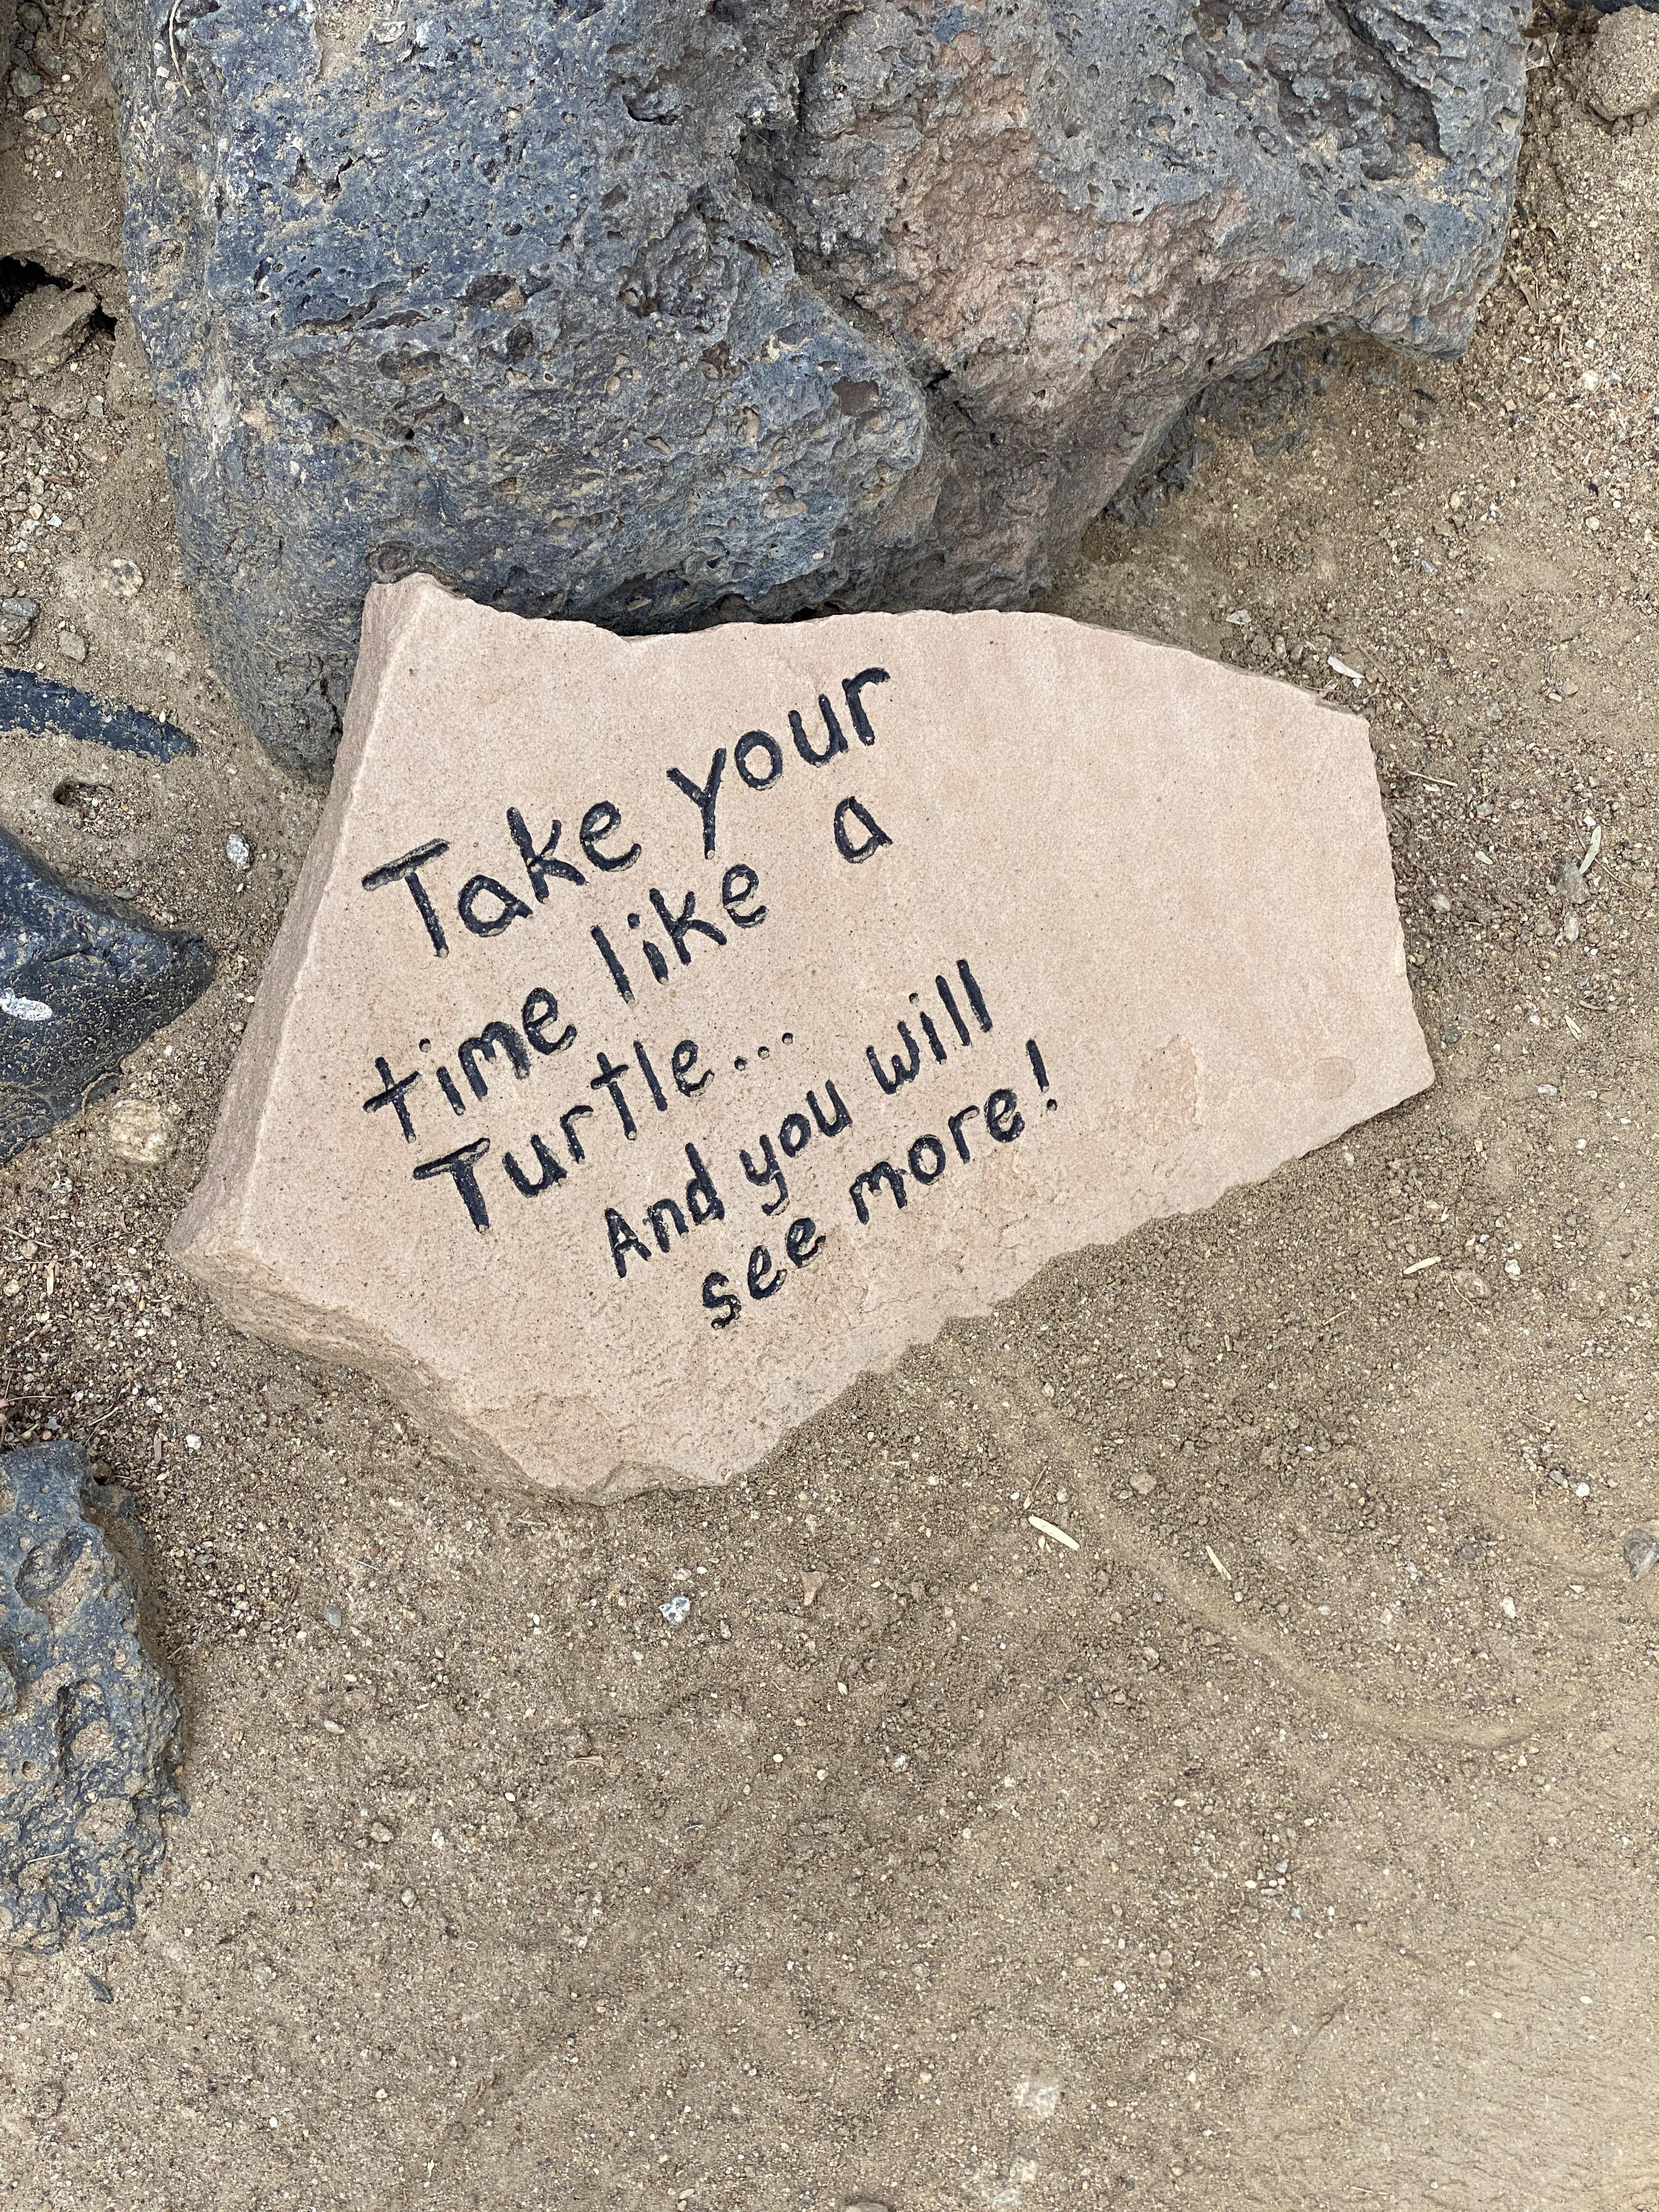 Take your
time like a
Turtle...
And you will
see more!